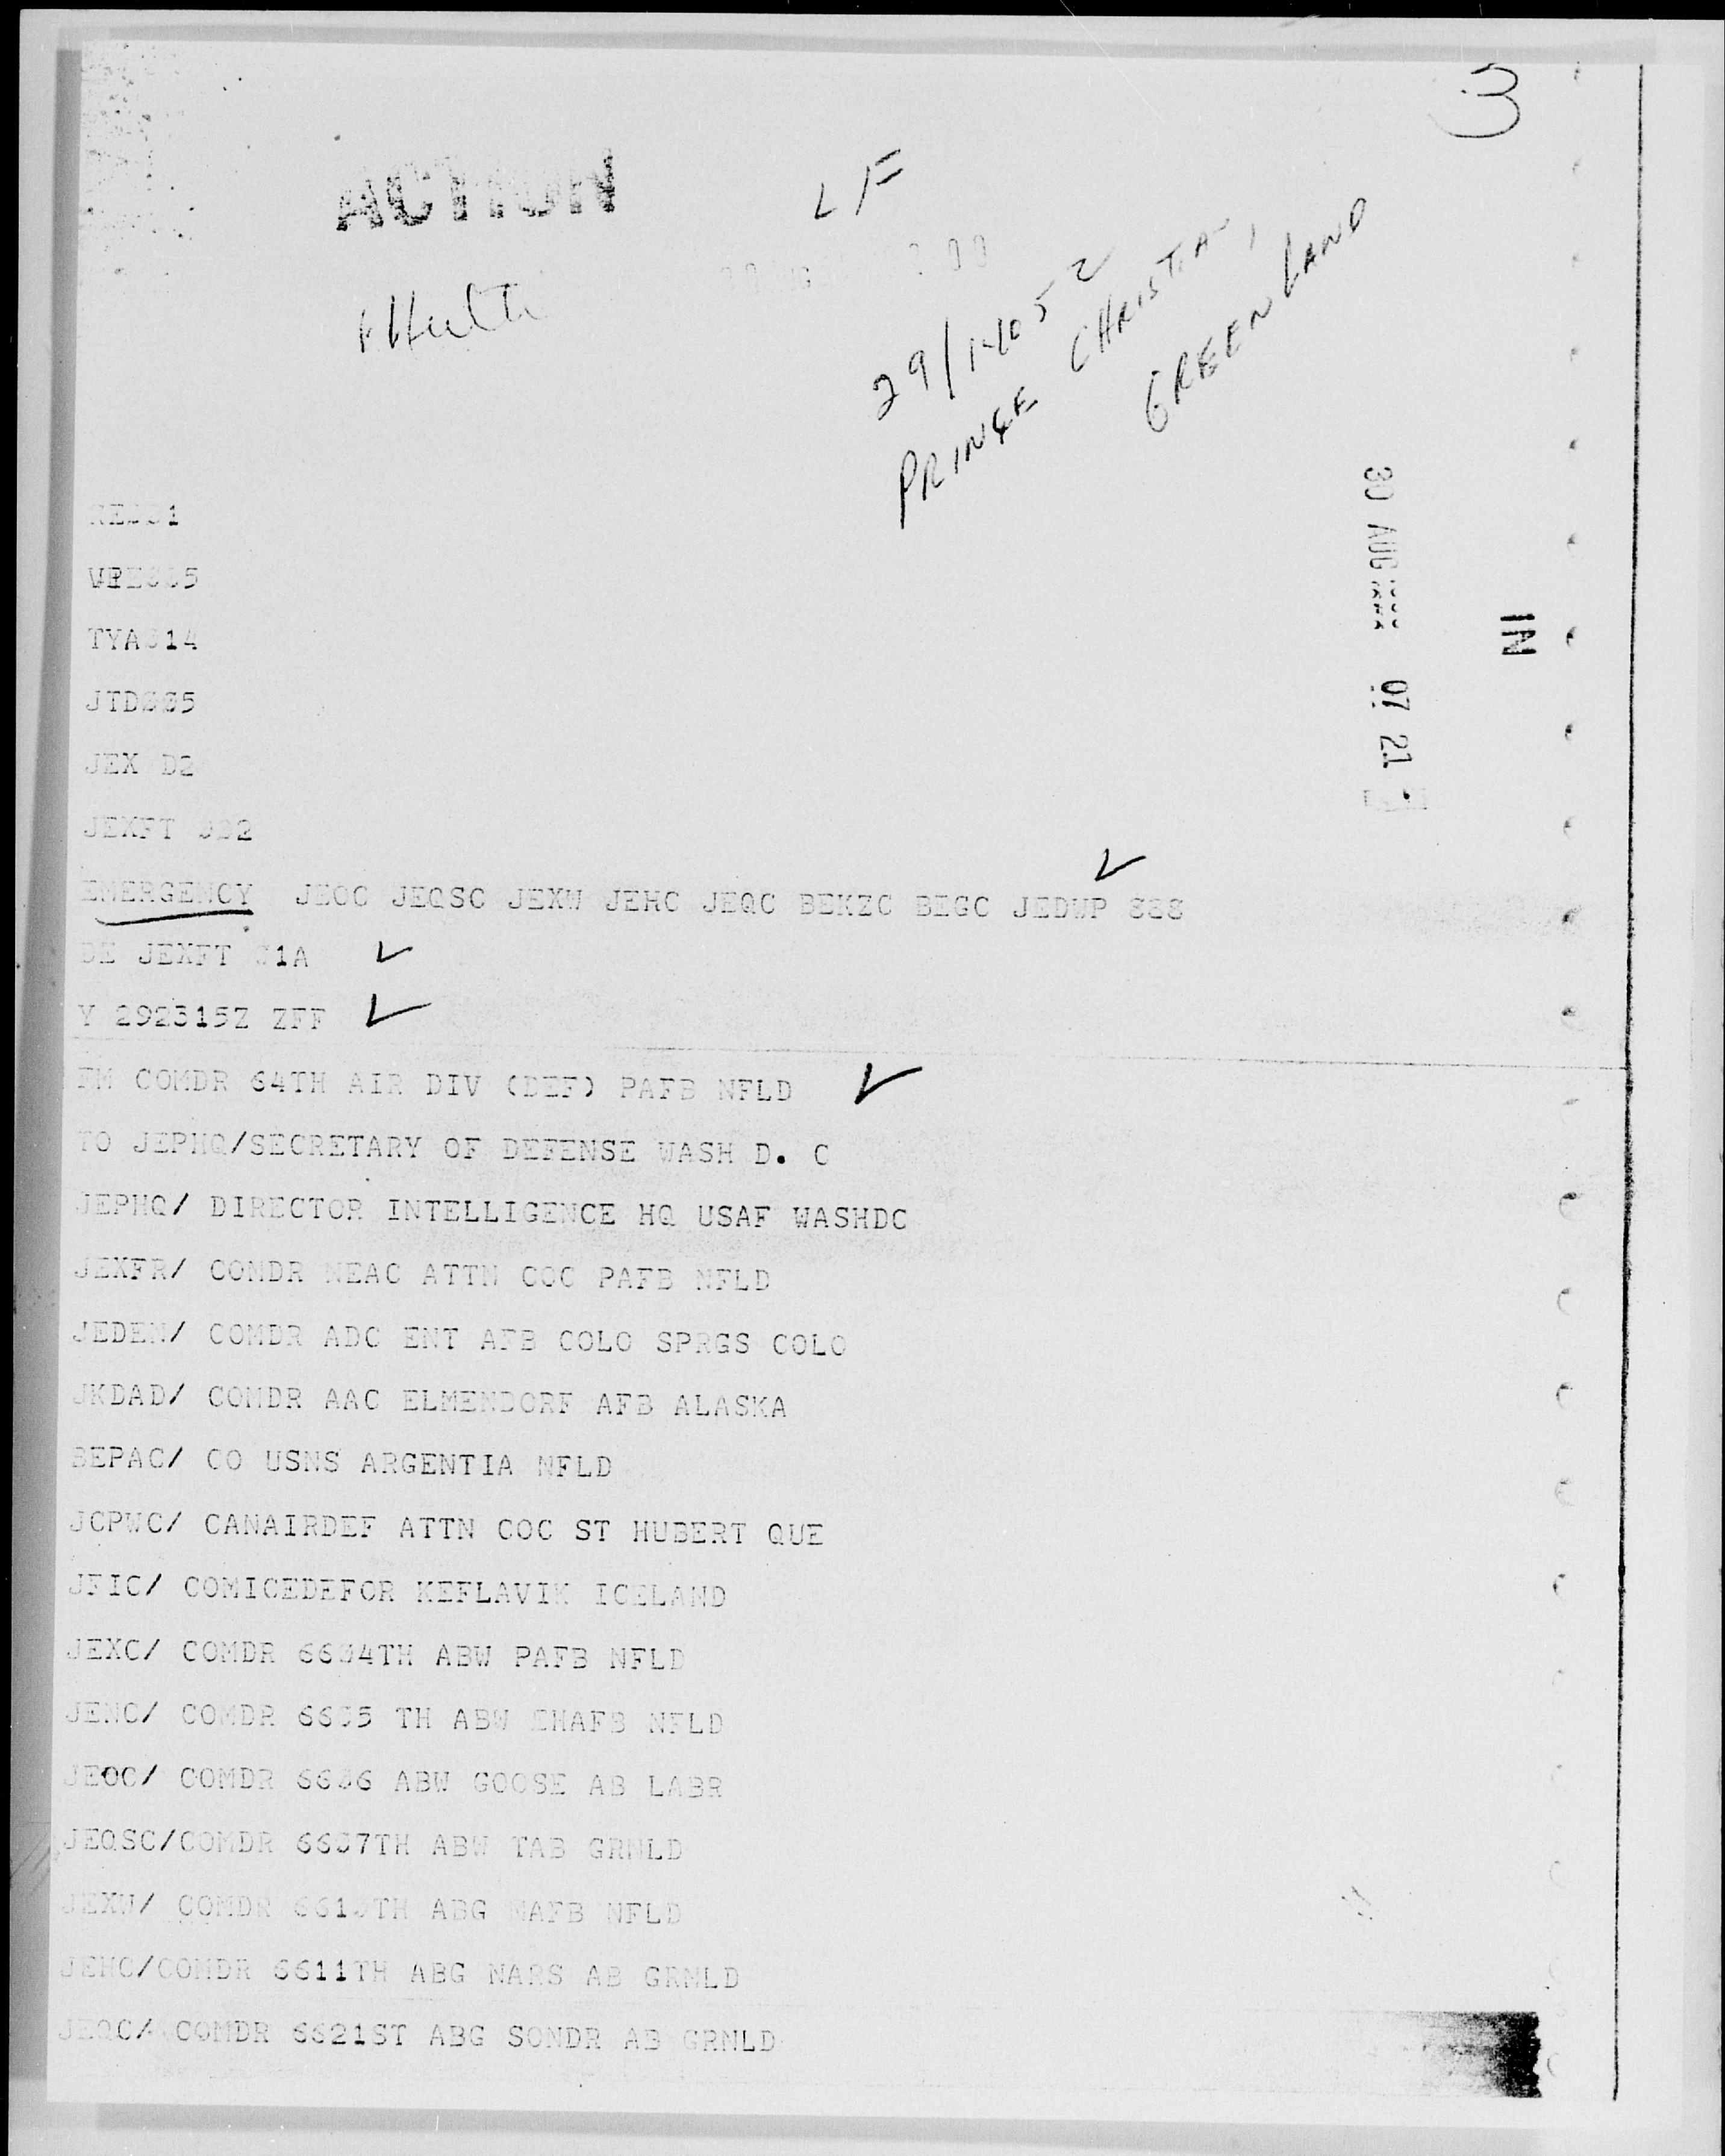 3
ACTION
LF
29/1405Z
PRINCE CHRISTIAN,
GREENLAND
30 AUG 07 21
IN
TYA014
JTD005
JEX D2
EMERGENCY JEOC JEQSC JEXW JEHC JEQC BEKZC BEGC JEDWP 888
DE JEXFT 01A
Y 292315Z ZFF
FM COMDR 64TH AIR DIV (DEF) PAFB NFLD
TO JEPHQ/SECRETARY OF DEFENSE WASH D. C
JEPHQ/ DIRECTOR INTELLIGENCE HQ USAF WASHDC
JEXFR/ COMDR NEAC ATTN COC PAFB NFLD
JEDEN/ COMDR ADC ENT AFB COLO SPRGS COLO
JKDAD/ COMDR AAC ELMENDORF AFB ALASKA
BEPAC/ CO USNS ARGENTIA NFLD
JCPWC/ CANAIRDEF ATTN COC ST HUBERT QUE
JFIC/ COMICEDEFOR KEFLAVIK ICELAND
JEXC/ COMDR 6604TH ABW PAFB NFLD
JENC/ COMDR 6605 TH ABW EHAFB NFLD
JEOC/ COMDR 6606 ABW GOOSE AB LABR
JEQSC/COMDR 6607TH ABW TAB GRNLD
JEXW/ COMDR 6610TH ABG MAFB NFLD
JEHC/COMDR 6611TH ABG NARS AB GRNLD
JEQC/ COMDR 6621ST ABG SONDR AB GRNLD